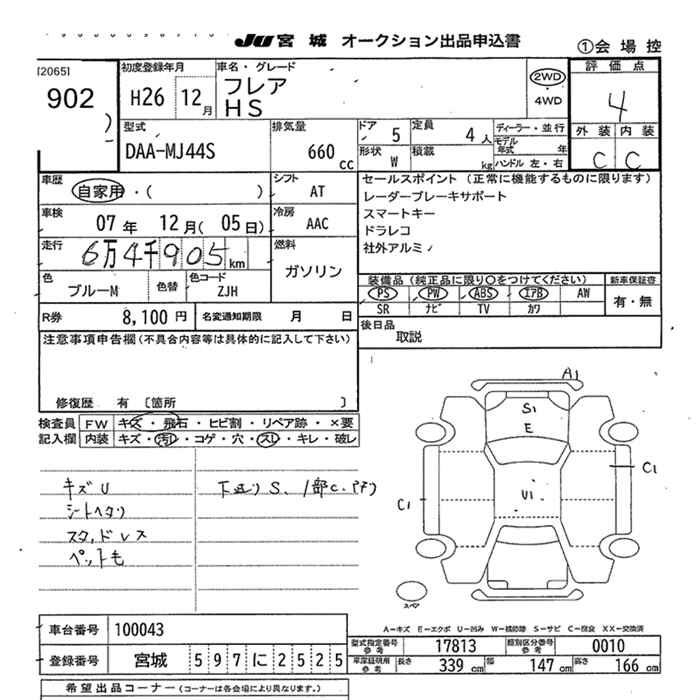 JU 宮城 オークション出品申込書 ①会場控
[20651
902
初度登録年月 車名・グレード 評価点
H26 12月 フレア 2WD ・ 4WD 4
HS
型式 排気量 ドア 定員 ディーラー・並行 外装 内装
DAA-MJ44S 660 cc 5 4人 モデル年式 年 C C
形状 W 積載 kg ハンドル 左・右
車歴 自家用・( ) シフト AT セールスポイント(正常に機能するものに限ります)
車検 07年 12月(05日) 冷房 AAC レーダーブレーキサポート
スマートキー
走行 6万4千905km 燃料 ガソリン ドラレコ
社外アルミ
色 ブルーM 色替 色コード ZJH 装備品(純正品に限り○をつけてください) 新車保証書
PS PW ABS エアB AW 有・無
SR ナビ TV カワ
R券 8,100円 名変通知期限 月 日 後日品
取説
注意事項申告欄(不具合内容等は具体的に記入して下さい)
修復歴 有 〔箇所 〕
検査員 FW キズ・飛石・ヒビ割・リペア跡・×要
記入欄 内装 キズ・汚れ・コゲ・穴・スレ・キレ・破レ
キズU
シートヘタリ
スタッドレス
ペットも
下廻りS、1部C、P有
A1
S1
E
U1
C1
C1
スペア
A-キズ E-エクボ U-凹み W-補修跡 S-サビ C-腐食 XX-交換済
車台番号 100043
型式指定番号 参考 17813 類別区分番号 参考 0010
登録番号 宮城 597に2525
車庫証明用 参考 長さ 339cm 幅 147cm 高さ 166cm
希望出品コーナー(コーナーは各会場により異なります。)